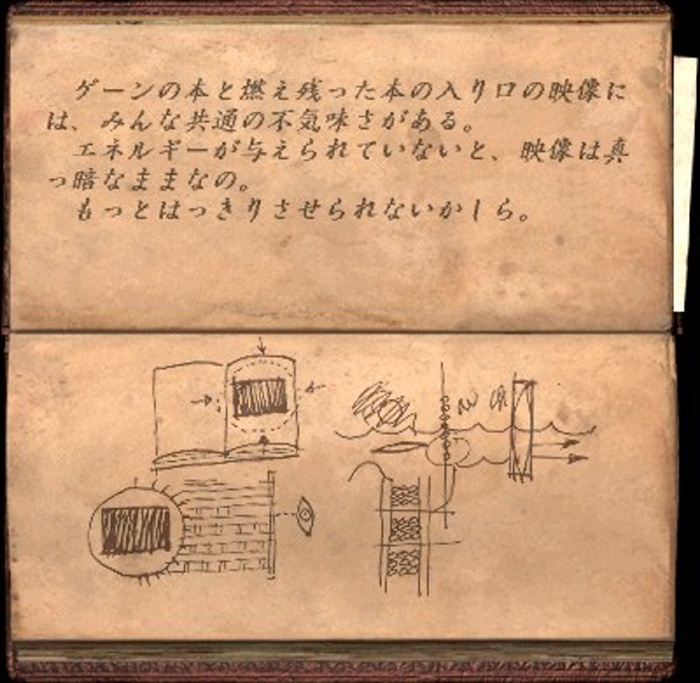 ゲーンの本と燃え残った本の入り口の映像に
は、みんな共通の不気味さがある。
エネルギーが与えられていないと、映像は真
っ暗なままなの。
もっとはっきりさせられないかしら。